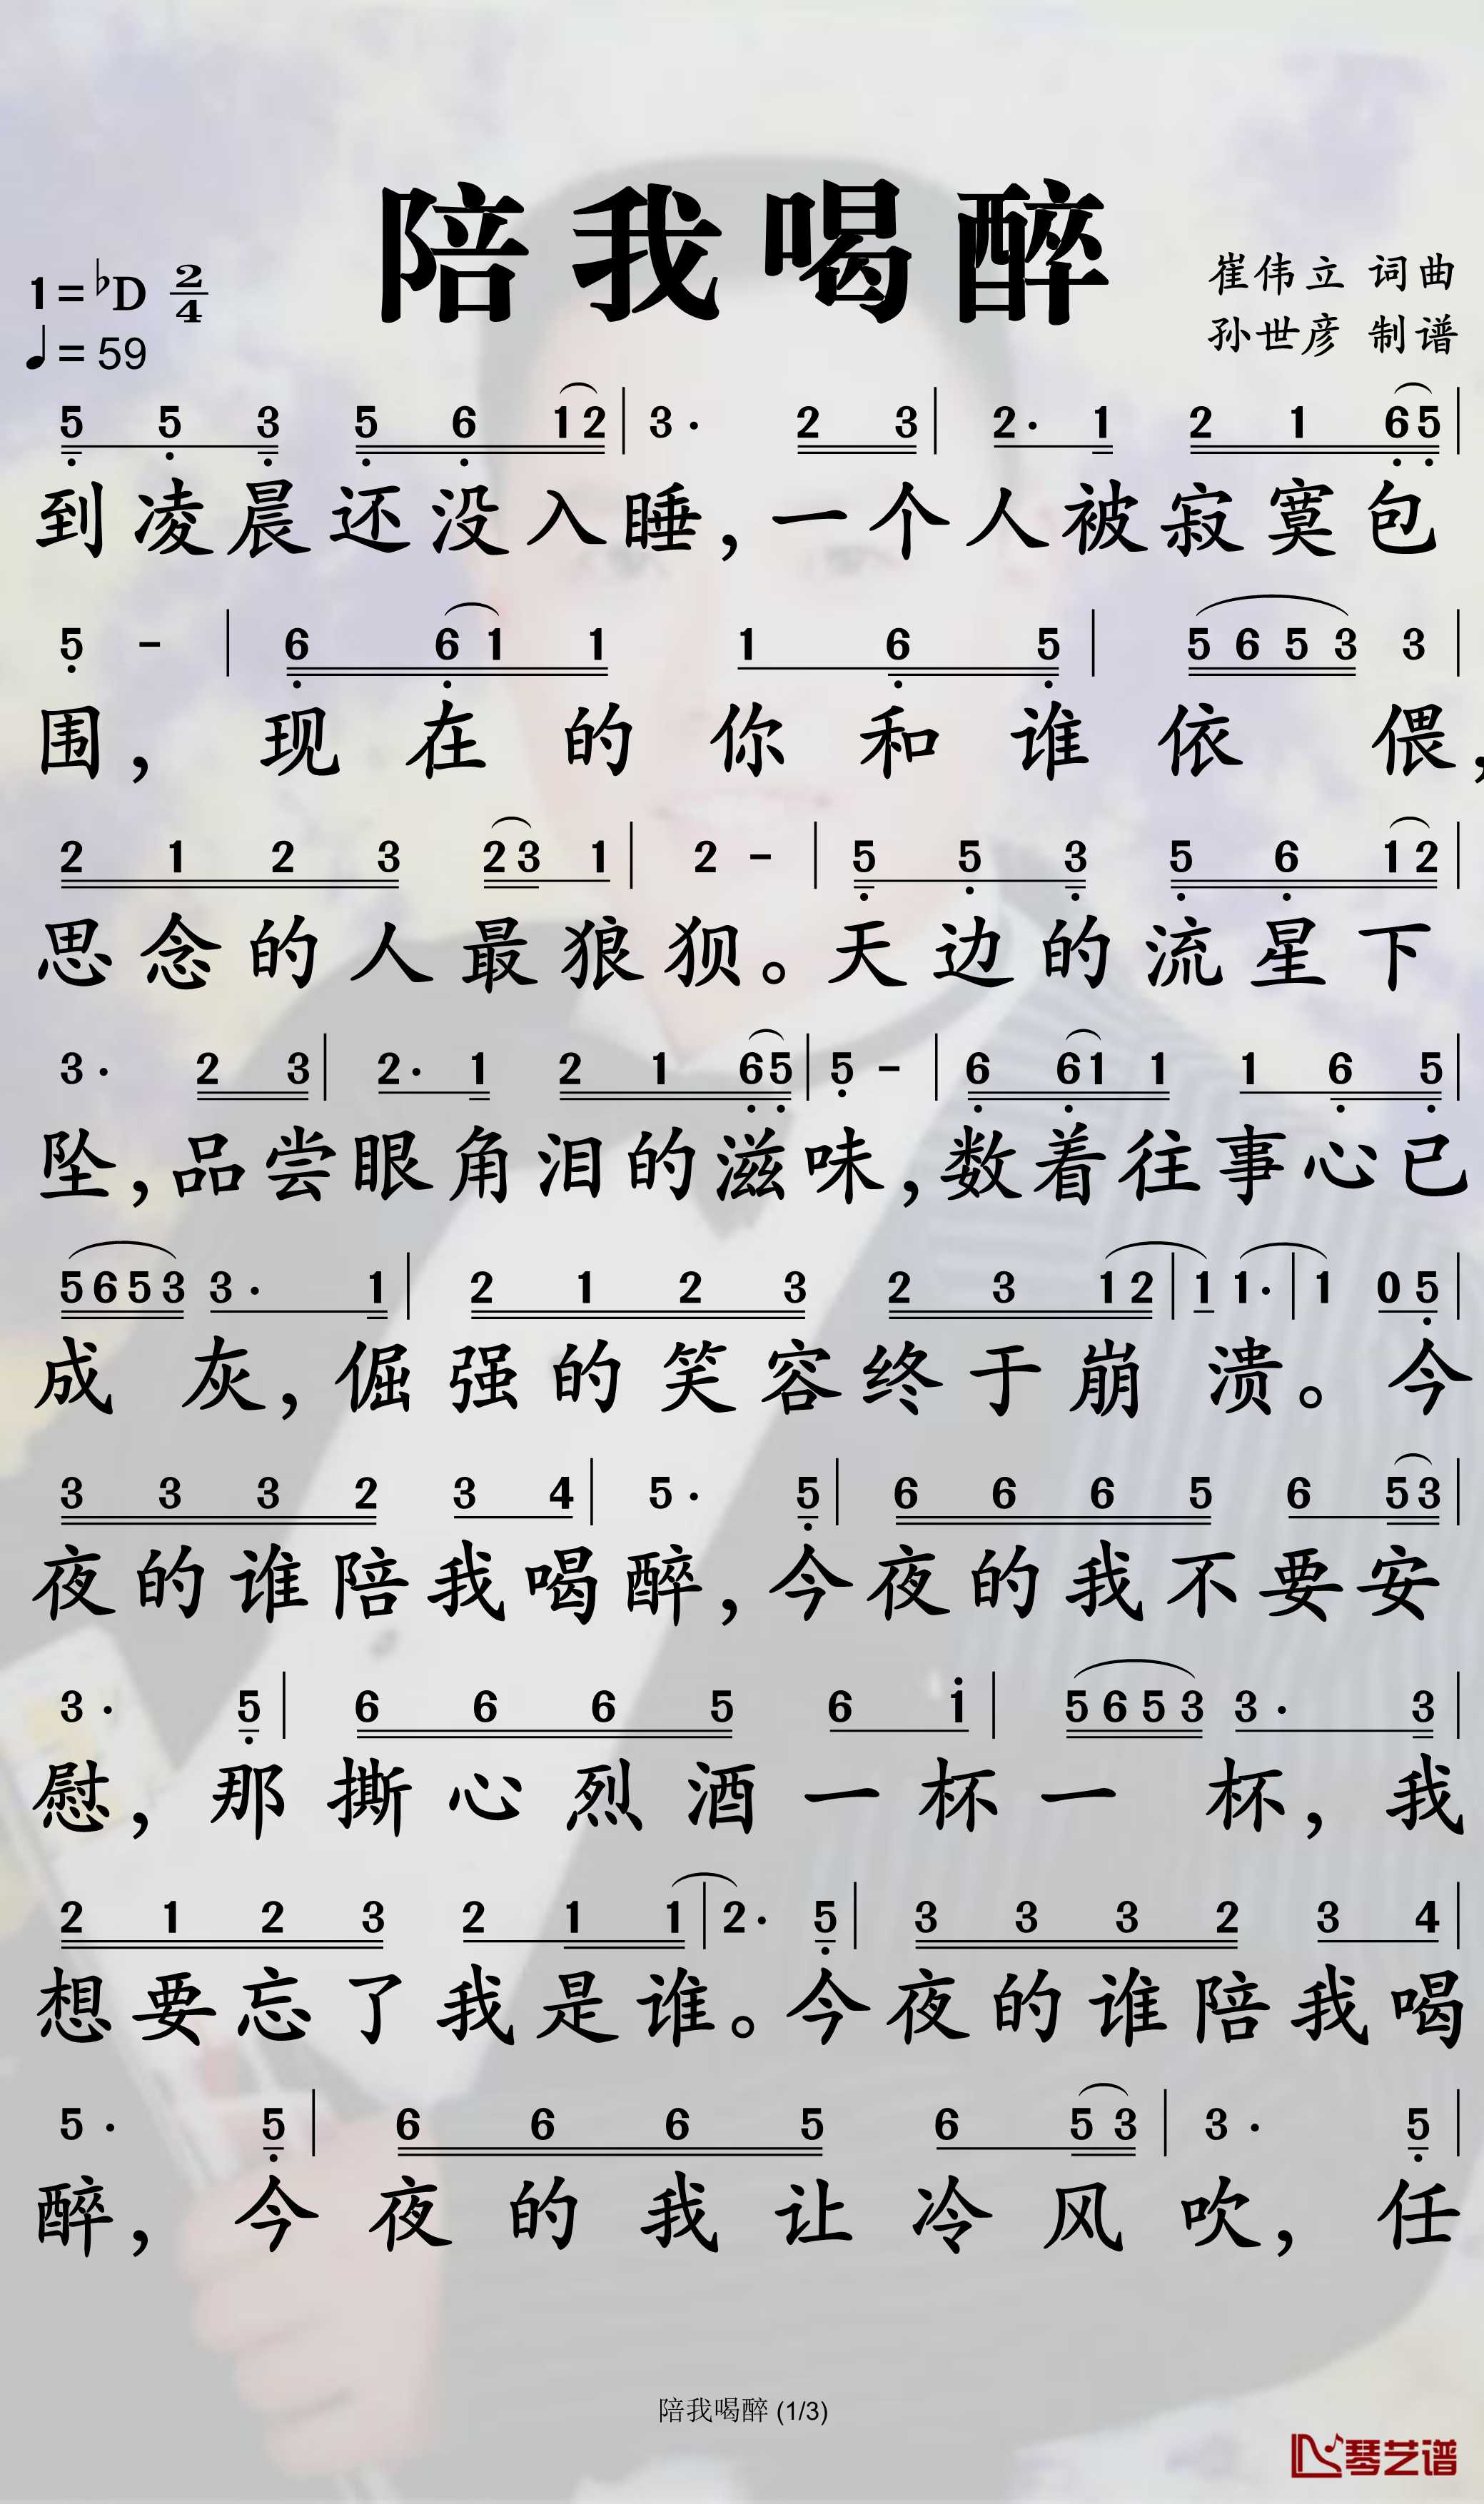 陪我喝醉
1=♭D 2/4
♩=59
崔伟立 词曲
孙世彦 制谱
5̣ 5̣ 3̣ 5̣ 6̣ 1 2 | 3· 2 3 | 2· 1 2 1 6̣ 5̣ |
到凌晨还没入睡，一个人被寂寞包
5̣ - | 6̣ 6̣ 1 1 1 6̣ 5̣ | 5 6 5 3 3 |
围，现在的你和谁依偎，
2 1 2 3 2 3 1 | 2 - | 5̣ 5̣ 3̣ 5̣ 6̣ 1 2 |
思念的人最狼狈。天边的流星下
3· 2 3 | 2· 1 2 1 6̣ 5̣ | 5̣ - | 6̣ 6̣ 1 1 1 6̣ 5̣ |
坠，品尝眼角泪的滋味，数着往事心已
5 6 5 3 3· 1 | 2 1 2 3 2 3 1 2 | 1 1· | 1 0 5̣ |
成灰，倔强的笑容终于崩溃。今
3 3 3 2 3 4 | 5· 5̣ | 6 6 6 5 6 5 3 |
夜的谁陪我喝醉，今夜的我不要安
3· 5̣ | 6 6 6 5 6 i | 5 6 5 3 3· 3 |
慰，那撕心烈酒一杯一杯，我
2 1 2 3 2 1 1 | 2· 5̣ | 3 3 3 2 3 4 |
想要忘了我是谁。今夜的谁陪我喝
5· 5̣ | 6 6 6 5 6 5 3 | 3· 5̣ |
醉，今夜的我让冷风吹，任
陪我喝醉 (1/3)
琴艺谱